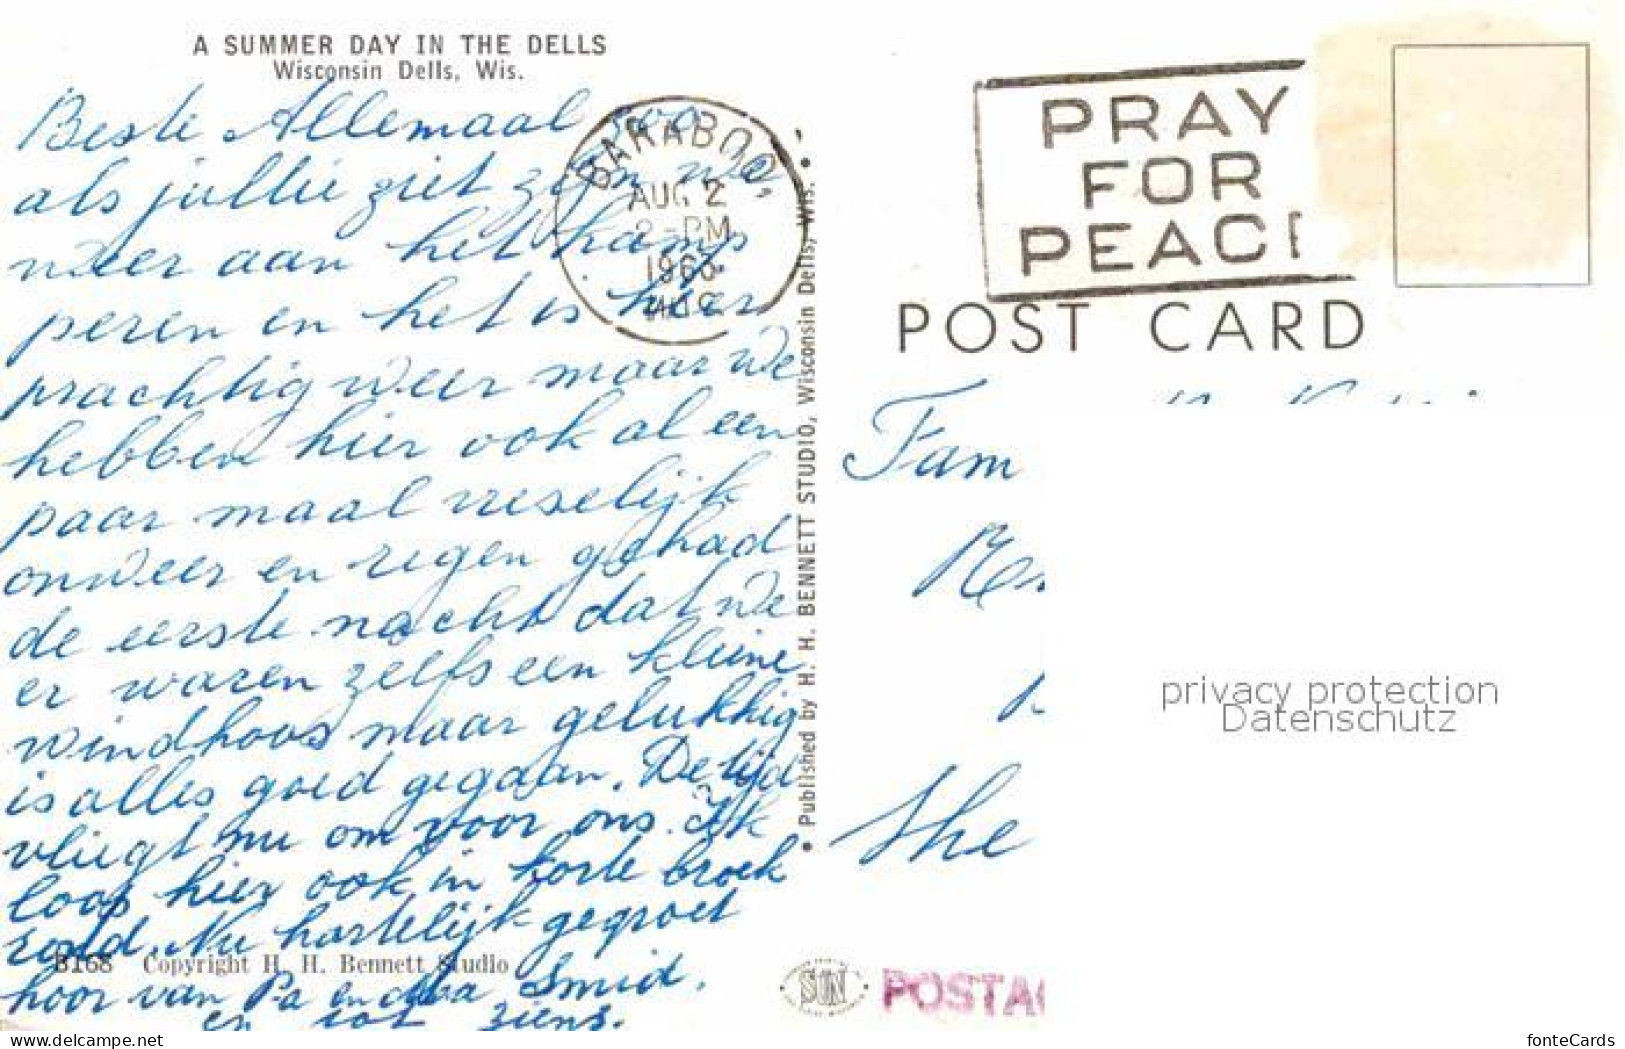 A SUMMER DAY IN THE DELLS
Wisconsin Dells, Wis.
Beste Allemaal zoo
als jullie ziet zijn we
weer aan het kamp
peren en het is hier
prachtig weer maar we
hebben hier ook al een
paar maal vreselijk
onweer en regen gehad
de eerste nacht dat we
er waren zelfs een kleine
windhoos maar gelukkig
is alles goed gegaan. De tijd
vliegt nu om voor ons. Ik
loop hier ook in korte broek
rond. Nu hartelijk gegroet
hoor van Pa en Smid.
en tot ziens.
B168 Copyright H. H. Bennett Studio
BARABOO,
AUG 2
2-PM
1966
WIS.
• Published by H. H. BENNETT STUDIO, Wisconsin Dells, Wis. •
PRAY
FOR
PEACE
POST CARD
Fam
The
privacy protection
Datenschutz
SUN
POSTA
www.delcampe.net
fonteCards